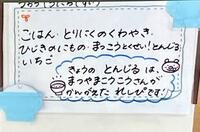 ごはん・とりにくのくわやき・
ひじきのにもの・まっこうとくせい!とんじる
いちご
きょうの とんじる は、
まつやまこうこうさんが
かんがえた れしぴです!